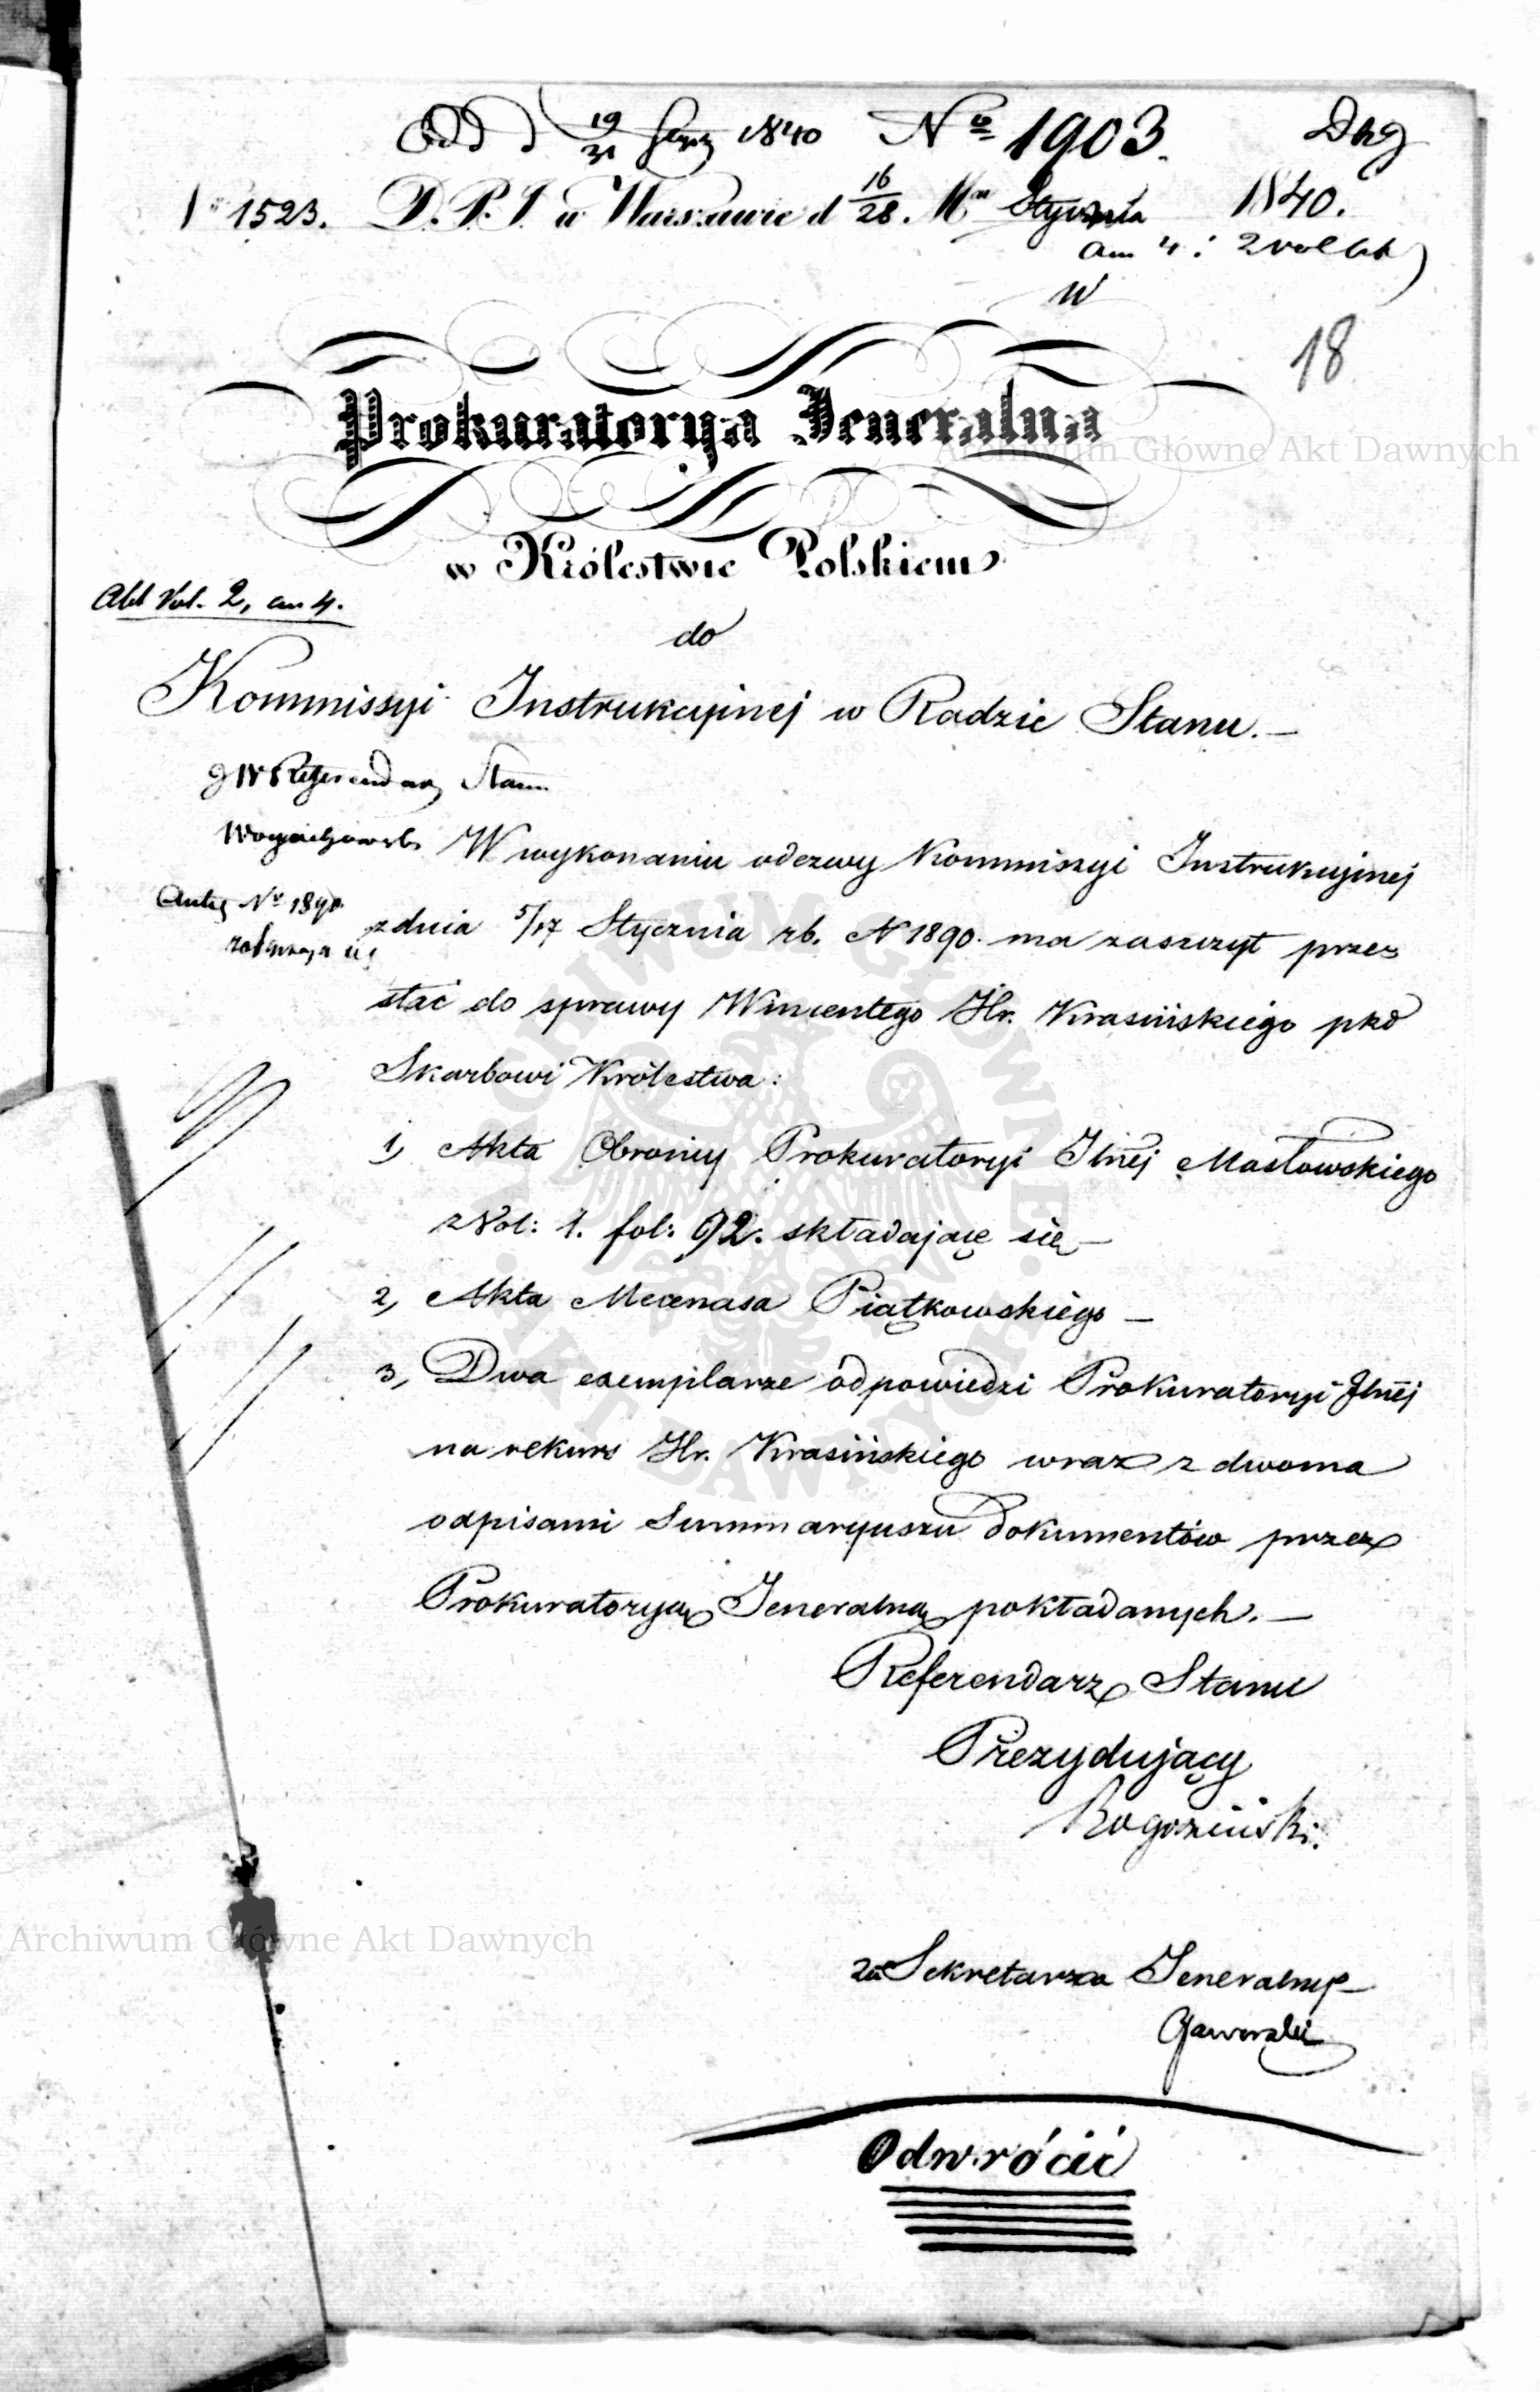 Odd d 19/31 1840 Nº 1903. Dhg
Nº 1523. D.P.J. w Warszawie d 16/28. Mca Stycznia 1840.
an 4: 2 vol Akt
W
18
Prokuratorya Jeneralna
Archiwum Główne Akt Dawnych
w Królestwie Polskiem
Akt Vol. 2, an 4.
do
Kommissyi Instrukcyinej w Radzie Stanu. —
JW Referendarz Stanu
W wykonaniu odezwy Kommissyi Instrukcyjnej
Nº 1890
z dnia 5/17 Stycznia rb. N 1890. ma zaszczyt prze
słać do sprawy Wincentego Hr. Krasińskiego pko
Skarbowi Królestwa:
1, Akta Obrońcy Prokuratoryi Jlnéj Masłowskiego
z Vol: 1. fol: 92. składające się —
2, Akta Mecenasa Piątkowskiego —
3, Dwa exemplarze odpowiedzi Prokuratoryi Jlnéj
na rekurs Hr. Krasińskiego wraz z dwoma
odpisami Summaryuszu dokumentów przez
Prokuratoryą Jeneralną pokładanych. —
Referendarz Stanu
Prezydujący
Rogoziński.
Archiwum Główne Akt Dawnych
za Sekretarza Jeneralnego
Odwrócić
ARCHIWUM GŁÓWNE AKT DAWNYCH